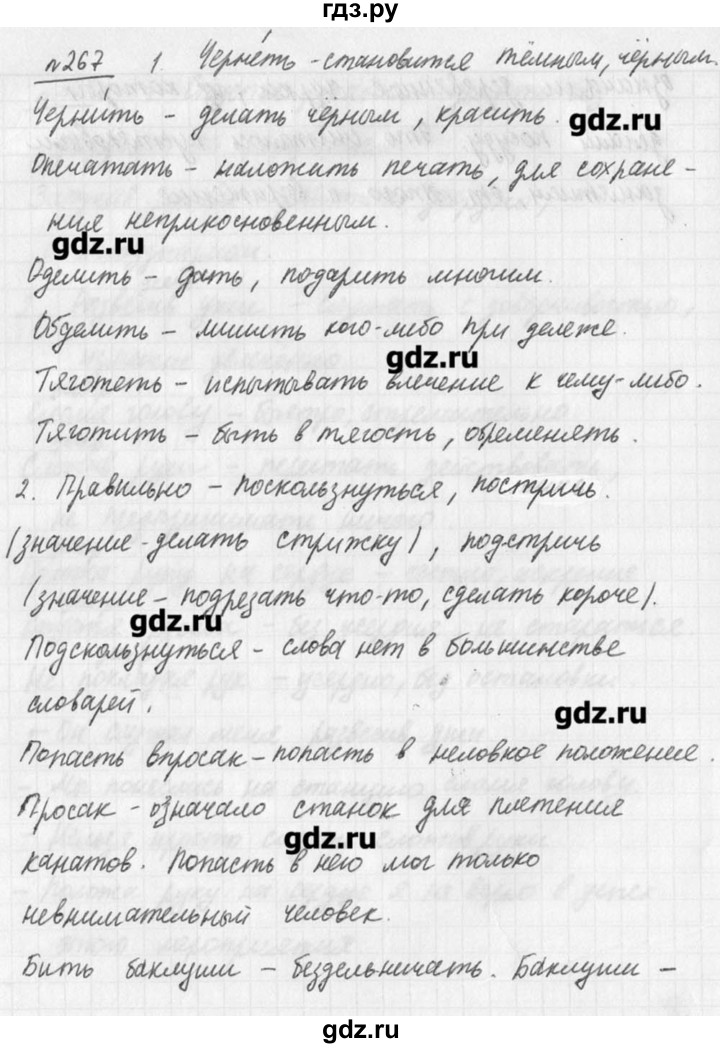 гдз.ру
№267 1. Черне́ть - становится тёмным, чёрным.
Черни́ть - делать чёрным, красить.
gdz.ru
Опечатать - наложить печать, для сохране-
ния неприкосновенным.
gdz.ru
Оделить - дать, подарить многим.
Обделить - лишить кого-либо при дележе.
gdz.ru
Тяготеть - испытывать влечение к чему-либо.
Тяготить - быть в тягость, обременять.
2. Правильно - поскользнуться, постричь.
(значение - делать стрижку), подстричь
(значение - подрезать что-то, сделать короче).
gdz.ru
Подскользнуться - слова нет в большинстве
словарей.
gdz.ru
Попасть впросак - попасть в неловкое положение.
Просак - означало станок для плетения
gdz.ru
канатов. Попасть в него мог только
невнимательный человек.
Бить баклуши - бездельничать. Баклуши -
gdz.ru